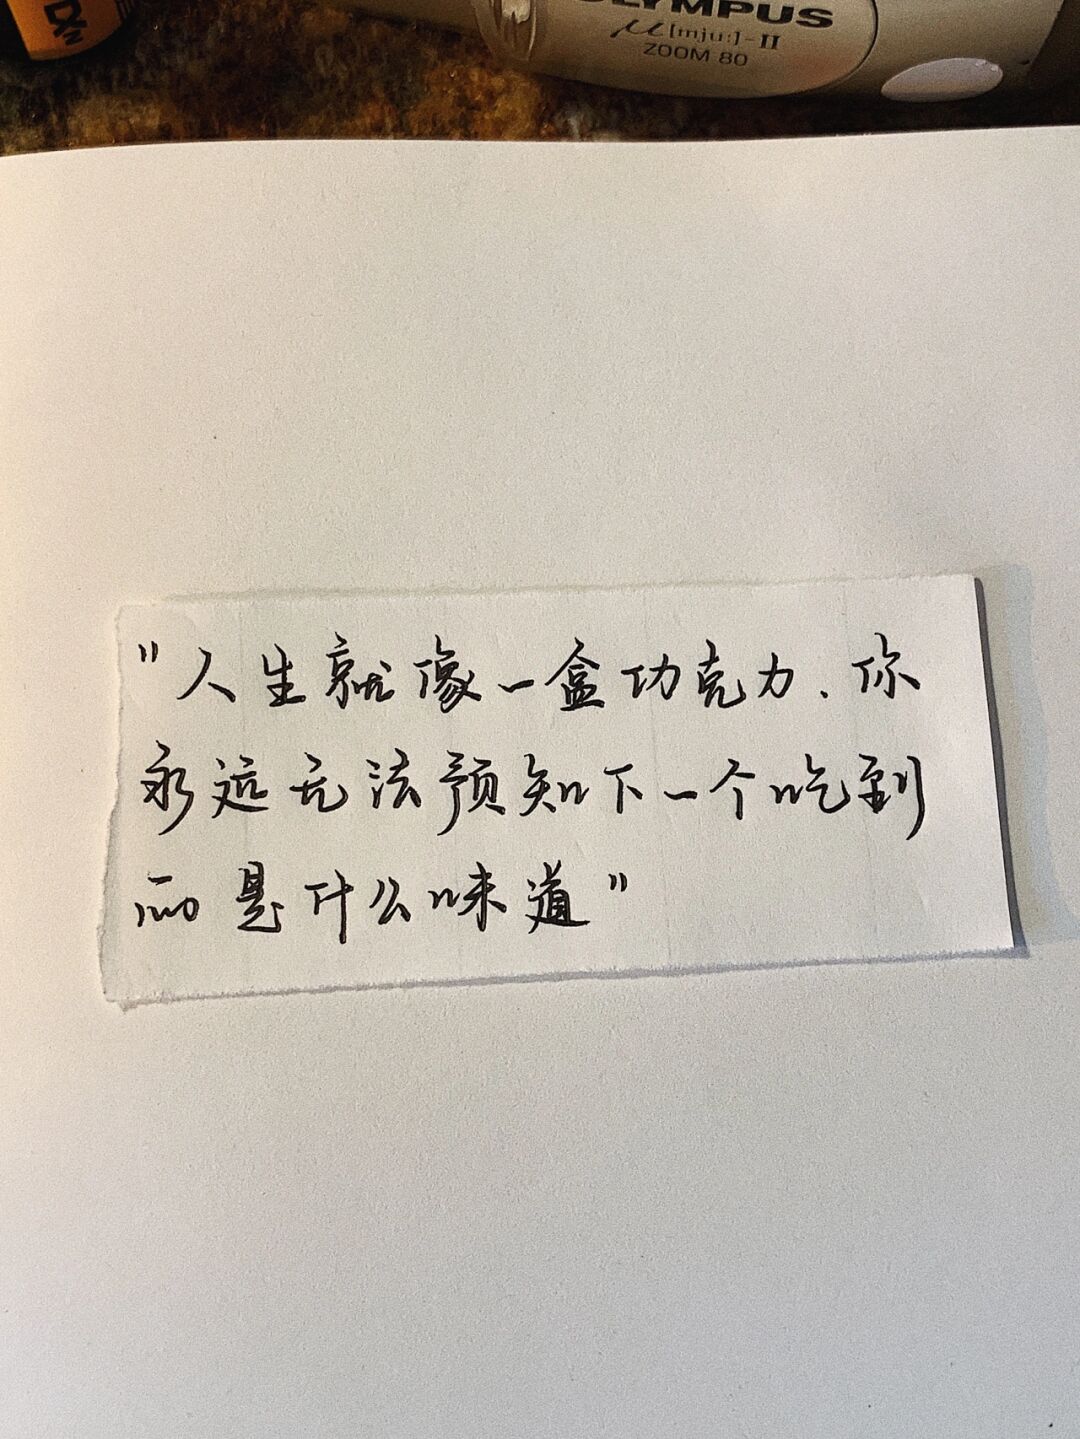 OLYMPUS
μ[mju:]-II
ZOOM 80
"人生就像一盒巧克力、你
永远无法预知下一个吃到
的是什么味道"